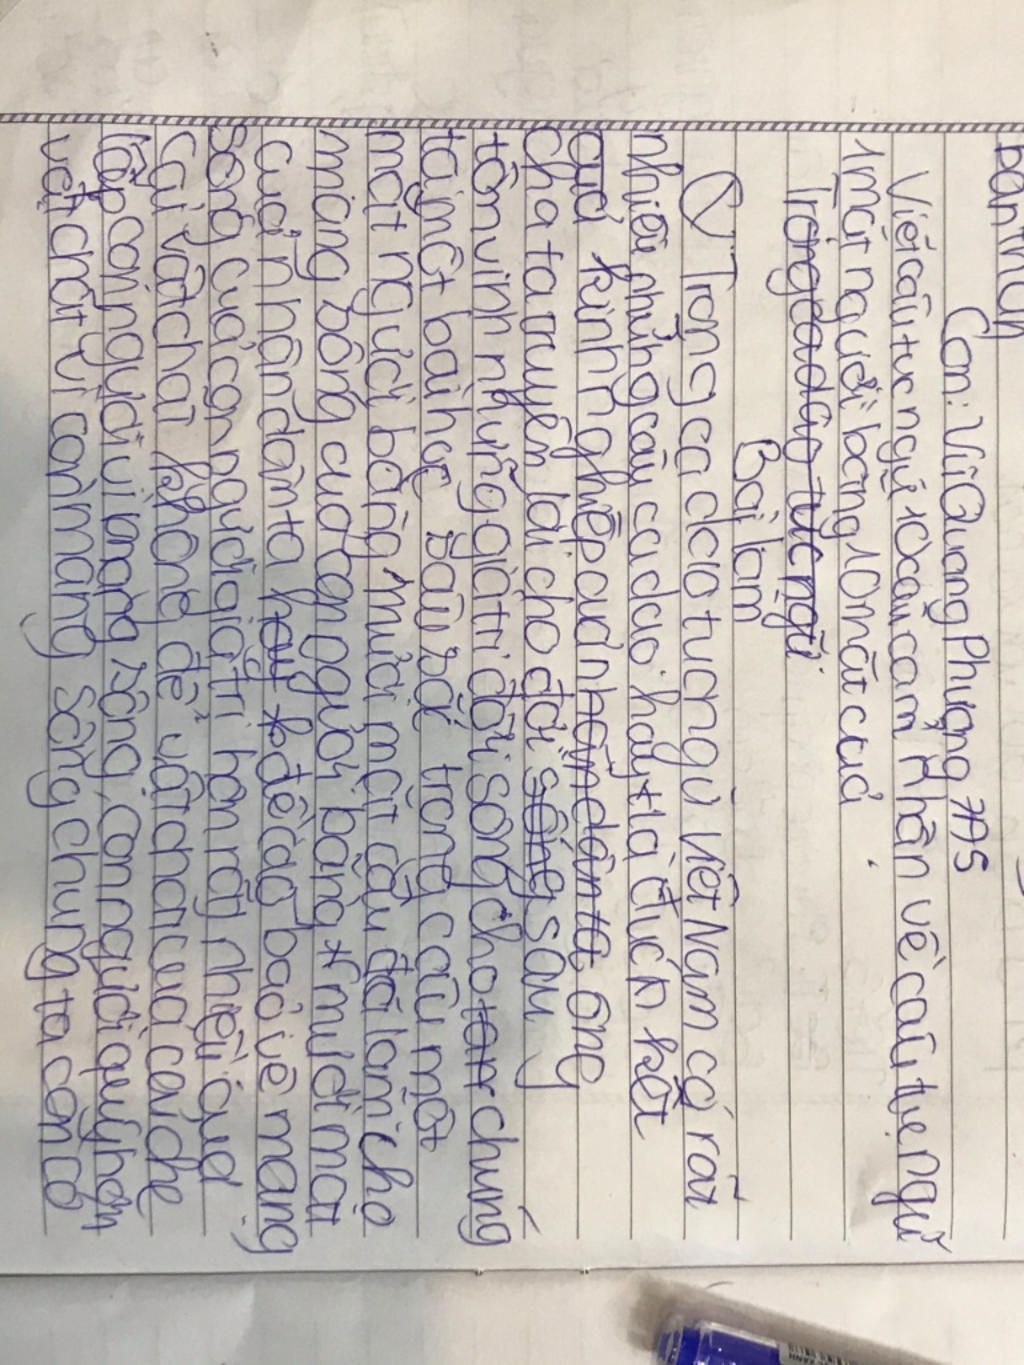 bản thân
Con: Vũ Quang Phượng 7A5
Viết câu tục ngữ 10 dản cảm nhân về câu tục ngữ
1 mặt người bằng 10 mặt của
Trong ca dao tục ngữ
Bài làm
Trong ca dao tuc ngữ Việt Nam có rất
nhiều những câu ca dao hay ta được n kết
quả kinh nghiệp của nhân dân ta ông
cha ta truyền lại cho đời sống sau
tôn vinh những giá trị đời sống cho tan chúng
ta một bài học sâu sắc trong câu một
mặt người bằng mười mặt của đã làm cho
mang bóng của con người bằng mười mặt
của nhân dân ta hay đề cao bảo vệ mạng
sống của con người giá trị hơn rất nhiều của
cải vật chất không để vật chất của cải che
lấp con người vì mạng sống con người quý hơn
vật chất vì còn mạng sống chúng ta còn có